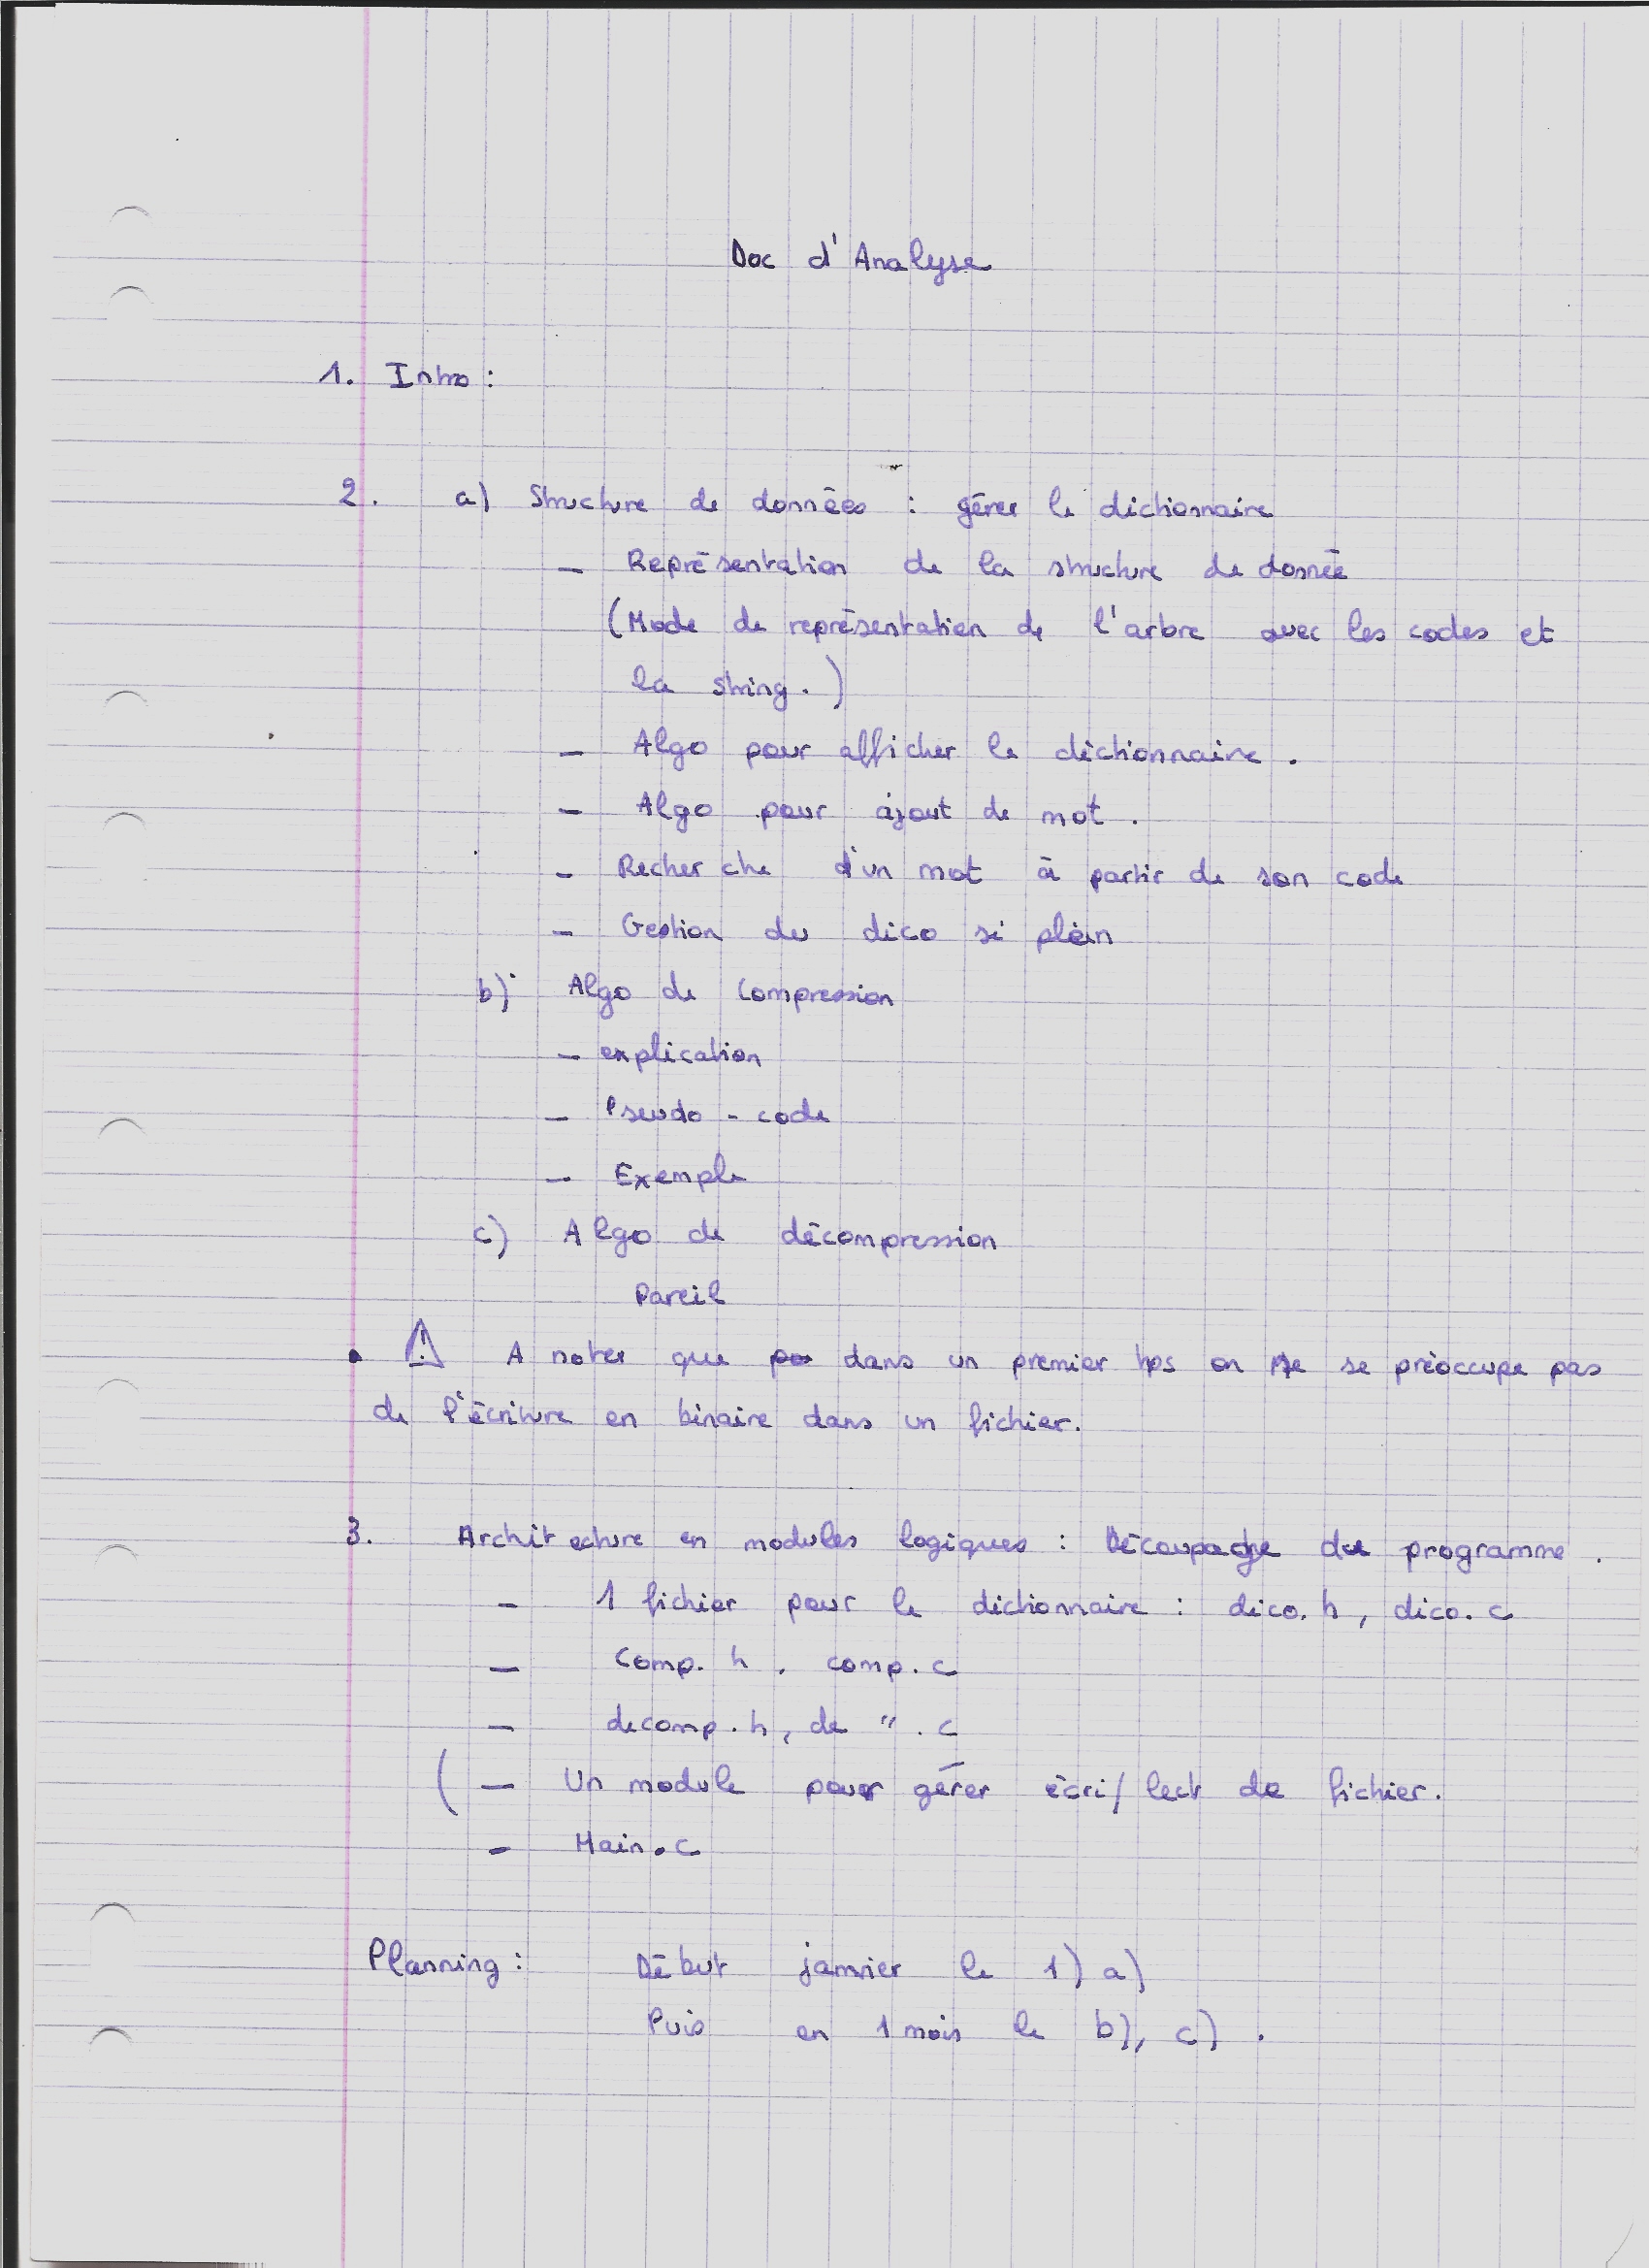 Doc d'Analyse
1. Intro :
2. a) Structure de données : gérer le dictionnaire
– Représentation de la structure de donnée
(Mode de représentation de l'arbre avec les codes et
la string.)
– Algo pour afficher le dictionnaire.
– Algo pour ajout de mot.
– Recherche d'un mot à partir de son code
– Gestion du dico si plein
b) Algo de compression
– explication
– Pseudo-code
– Exemple
c) Algo de décompression
Pareil
• ⚠ A noter que dans un premier tps on ne se préoccupe pas
de l'écriture en binaire dans un fichier.
3. Architecture en modules logiques : Découpage du programme.
– 1 fichier pour le dictionnaire : dico.h, dico.c
– Comp.h, comp.c
– decomp.h, de ".c
( – Un module pour gérer écri/lect de fichier.
– Main.c
Planning : Début janvier le 1) a)
Puis en 1 mois le b), c).